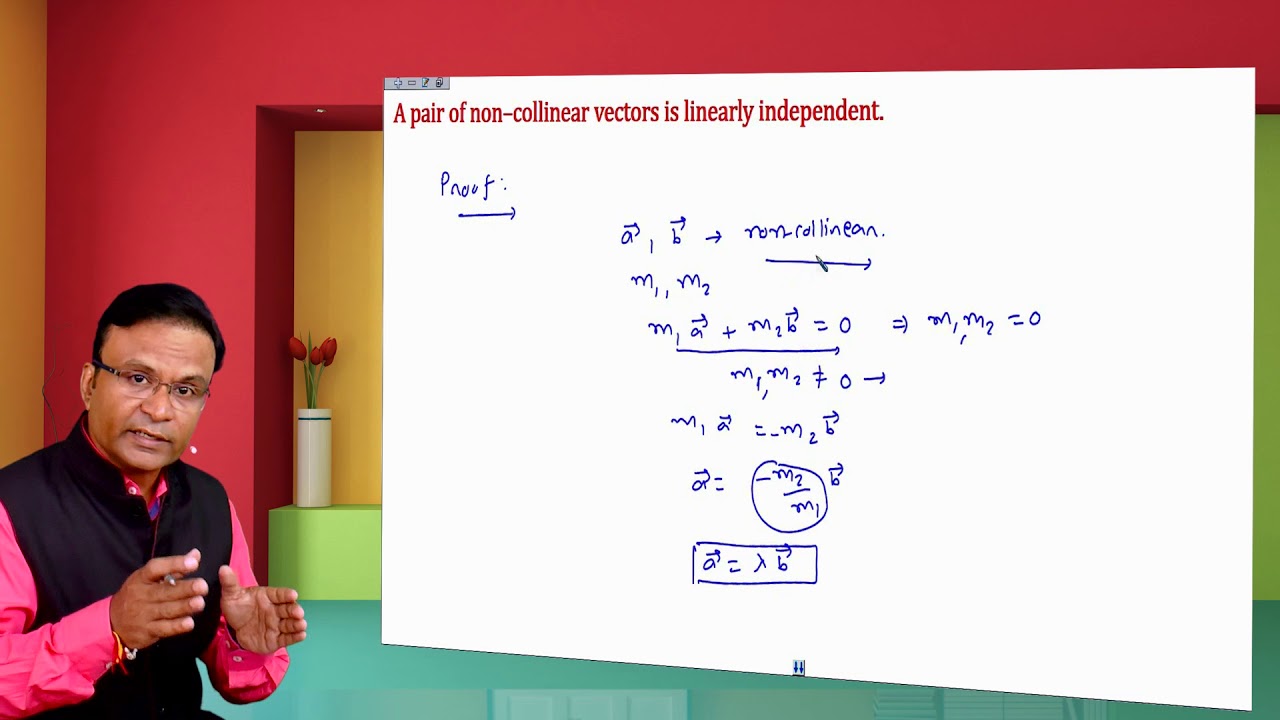 A pair of non–collinear vectors is linearly independent.
Proof:
a⃗, b⃗ → non-collinear.
m₁, m₂
m₁a⃗ + m₂b⃗ = 0 ⇒ m₁, m₂ = 0
m₁, m₂ ≠ 0 →
m₁ a⃗ = -m₂ b⃗
a⃗ = -m₂/m₁ b⃗
a⃗ = λ b⃗